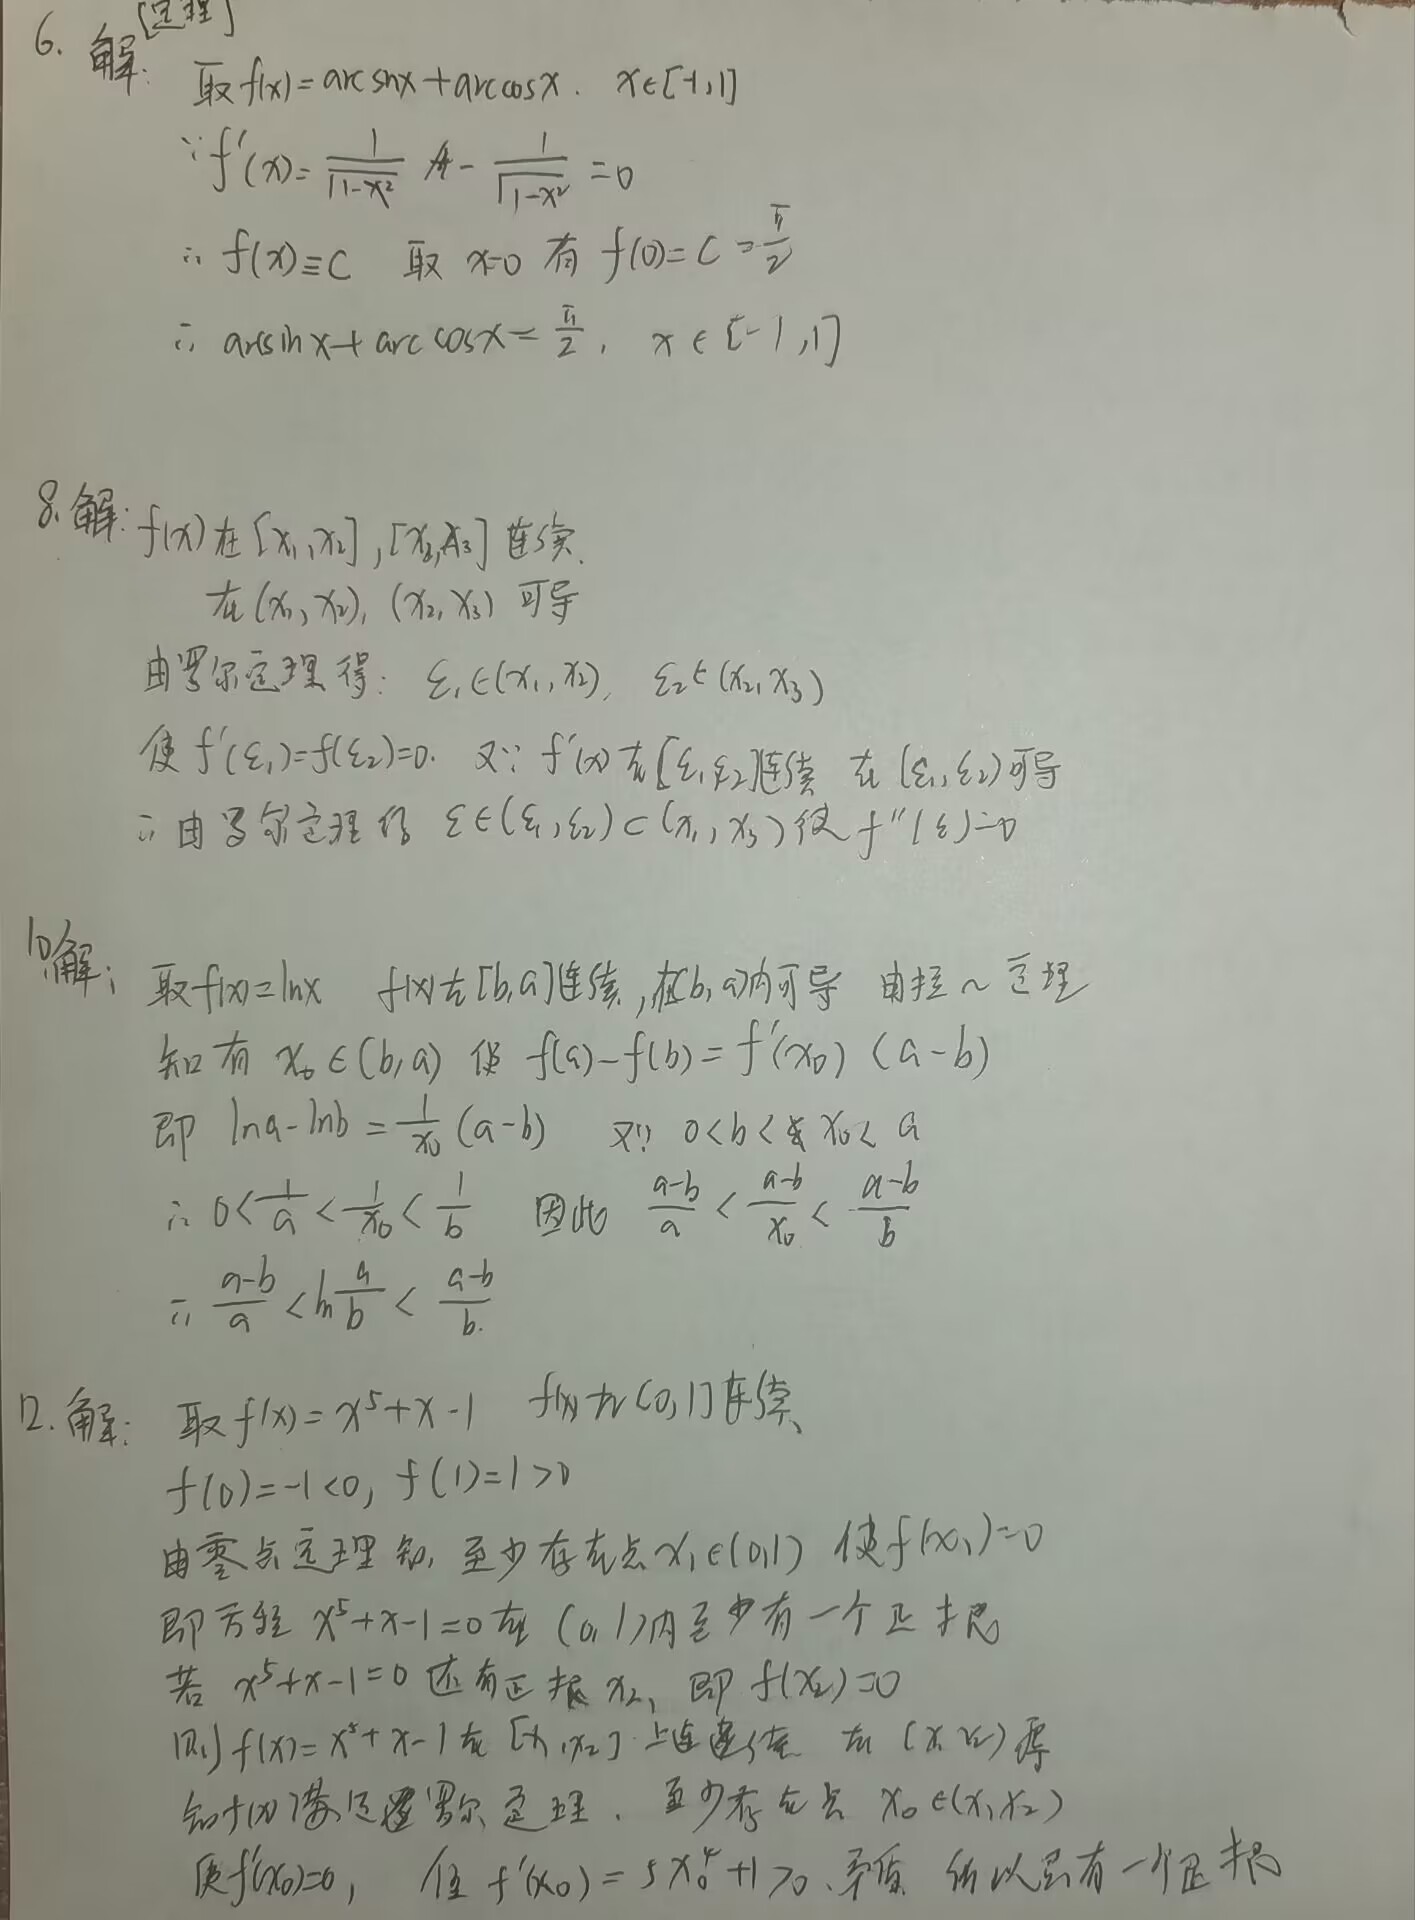 [定理]
6. 解: 取f(x)=arcsinx+arccosx. x∈[-1,1]
∵f'(x)=1/√1-x² - 1/√1-x² =0
∴f(x)≡C 取 x=0 有 f(0)=C=π/2
∴ arcsinx+arccosx=π/2, x∈[-1,1]
8.解: f(x)在[x₁,x₂],[x₂,x₃]连续.
在(x₁,x₂), (x₂,x₃)可导
由罗尔定理得: ξ₁∈(x₁,x₂), ξ₂∈(x₂,x₃)
使f'(ξ₁)=f(ξ₂)=0. 又∵ f'(x)在[ξ₁,ξ₂]连续 在(ξ₁,ξ₂)可导
∴由罗尔定理得 ξ∈(ξ₁,ξ₂)⊂(x₁,x₃)使f''(ξ)=0
10.解: 取f(x)=lnx f(x)在[b,a]连续,在(b,a)内可导 由拉~定理
知有 x₀∈(b,a) 使 f(a)-f(b)=f'(x₀)(a-b)
即 lna-lnb=1/x₀(a-b) 又∵ 0<b<x₀<a
∴0<1/a<1/x₀<1/b 因此 a-b/a<a-b/x₀<a-b/b
∴ a-b/a<ln a/b<a-b/b.
12.解: 取f(x)=x⁵+x-1 f(x)在(0,1]连续
f(0)=-1<0, f(1)=1>0
由零点定理知, 至少存在点x₁∈(0,1) 使f(x₁)=0
即方程 x⁵+x-1=0在(0,1)内至少有一个正根
若 x⁵+x-1=0还有正根x₂, 即f(x₂)=0
则f(x)=x⁵+x-1在[x₁,x₂]上连续 在(x₁x₂)导
知f(x)满足罗尔定理. 至少存在点 x₀∈(x₁x₂)
使f'(x₀)=0, 但f'(x₀)=5x₀⁴+1>0.矛盾 所以只有一个正根